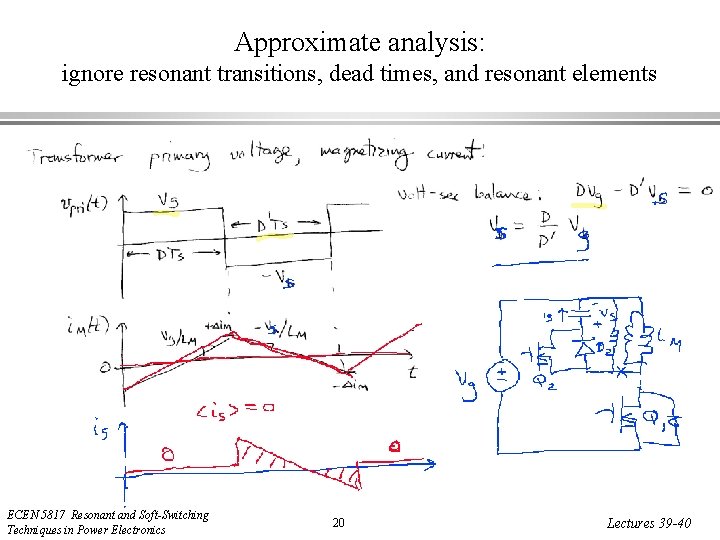 Approximate analysis:
ignore resonant transitions, dead times, and resonant elements
Transformer primary voltage, magnetizing current:
v_pri(t)
V_g
D T_s
D' T_s
- V_s
volt-sec balance: D V_g - D' V_s = 0
V_s = D/D' V_g
i_M(t)
V_g/L_M
+Δi_M
-V_s/L_M
0
-Δi_M
t
<i_s> = 0
i_s
0
0
V_g
+
-
i_s
- V_s
+
D_2
L_M
Q_2
Q_1
ECEN 5817 Resonant and Soft-Switching
Techniques in Power Electronics
20
Lectures 39-40